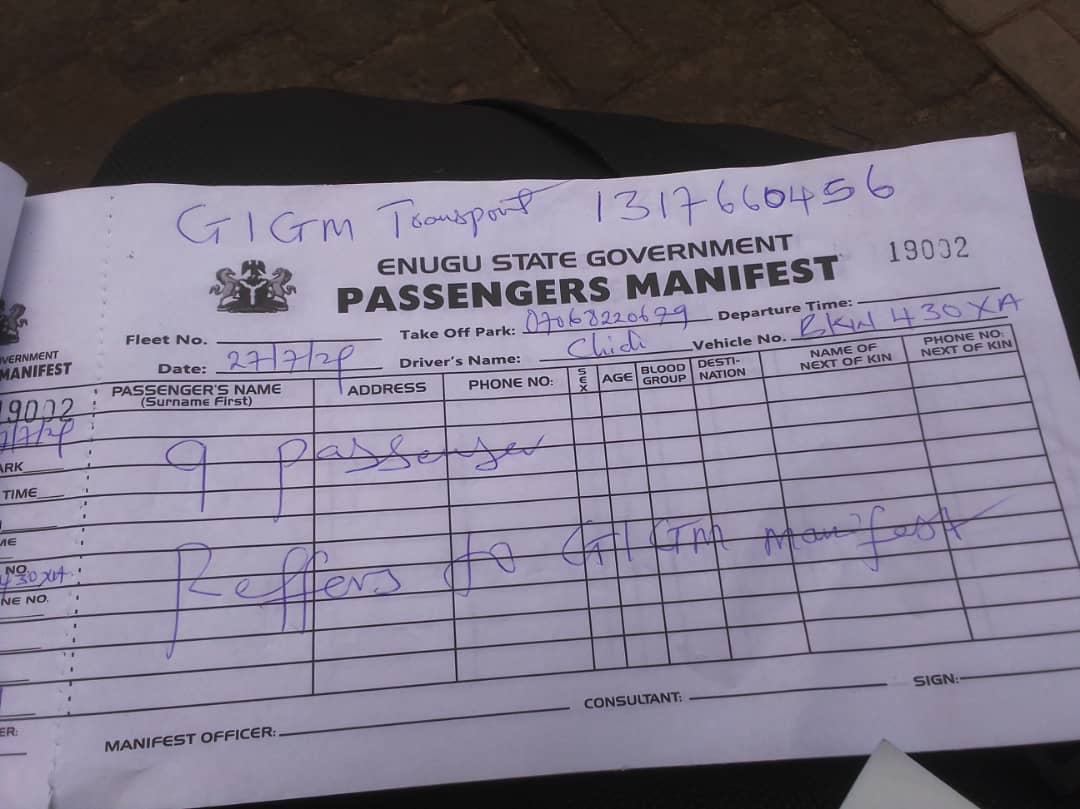 GIGM Transport 1317660456
ENUGU STATE GOVERNMENT
PASSENGERS MANIFEST
19002
Fleet No.
Take Off Park: 07068220679
Departure Time:
Date: 27/7/2
Driver's Name: Chidi
Vehicle No. BKW 430XA
PASSENGER'S NAME
(Surname First)
ADDRESS
PHONE NO:
SEX
AGE
BLOOD
GROUP
DESTI-
NATION
NAME OF
NEXT OF KIN
PHONE NO:
NEXT OF KIN
9 passenger
Reffers to GIGM manifest
MANIFEST OFFICER:
CONSULTANT:
SIGN:
VERNMENT
MANIFEST
19002
ARK
TIME
ME
NO.
430XA
NE NO.
ER: